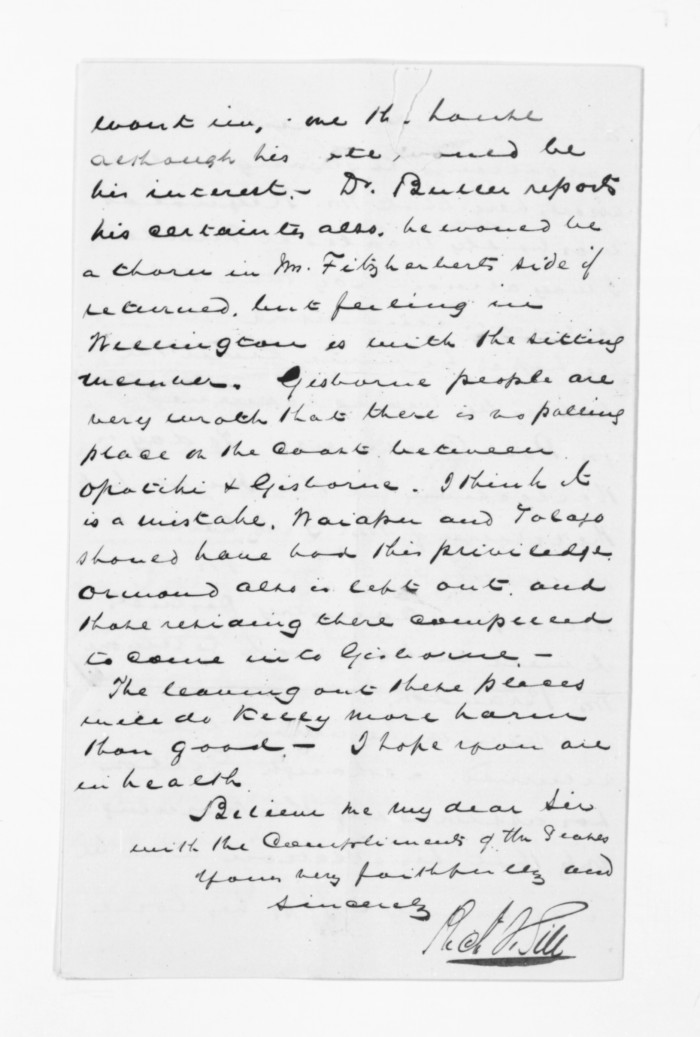 wont in, one th. house
although his etc, would be
his interest. - Dr. Buller reports
his certainty also. he would be
a thorn in Mr. Fitzherberts side if
returned, but feeling in
Wellington is with the sitting
member. Gisborne people are
very wroth that there is no polling
place on the coast between
Opotiki & Gisborne. I think it
is a mistake. Waiapu and Tolago
should have had this priviledge.
Ormond also is left out. and
those residing there compelled
to come into Gisborne. -
The leaving out these places
will do Kelly more harm
than good. - I hope you are
in health.
Believe me my dear Sir
with the Compliments of the
Yours very faithfully and
sincerely